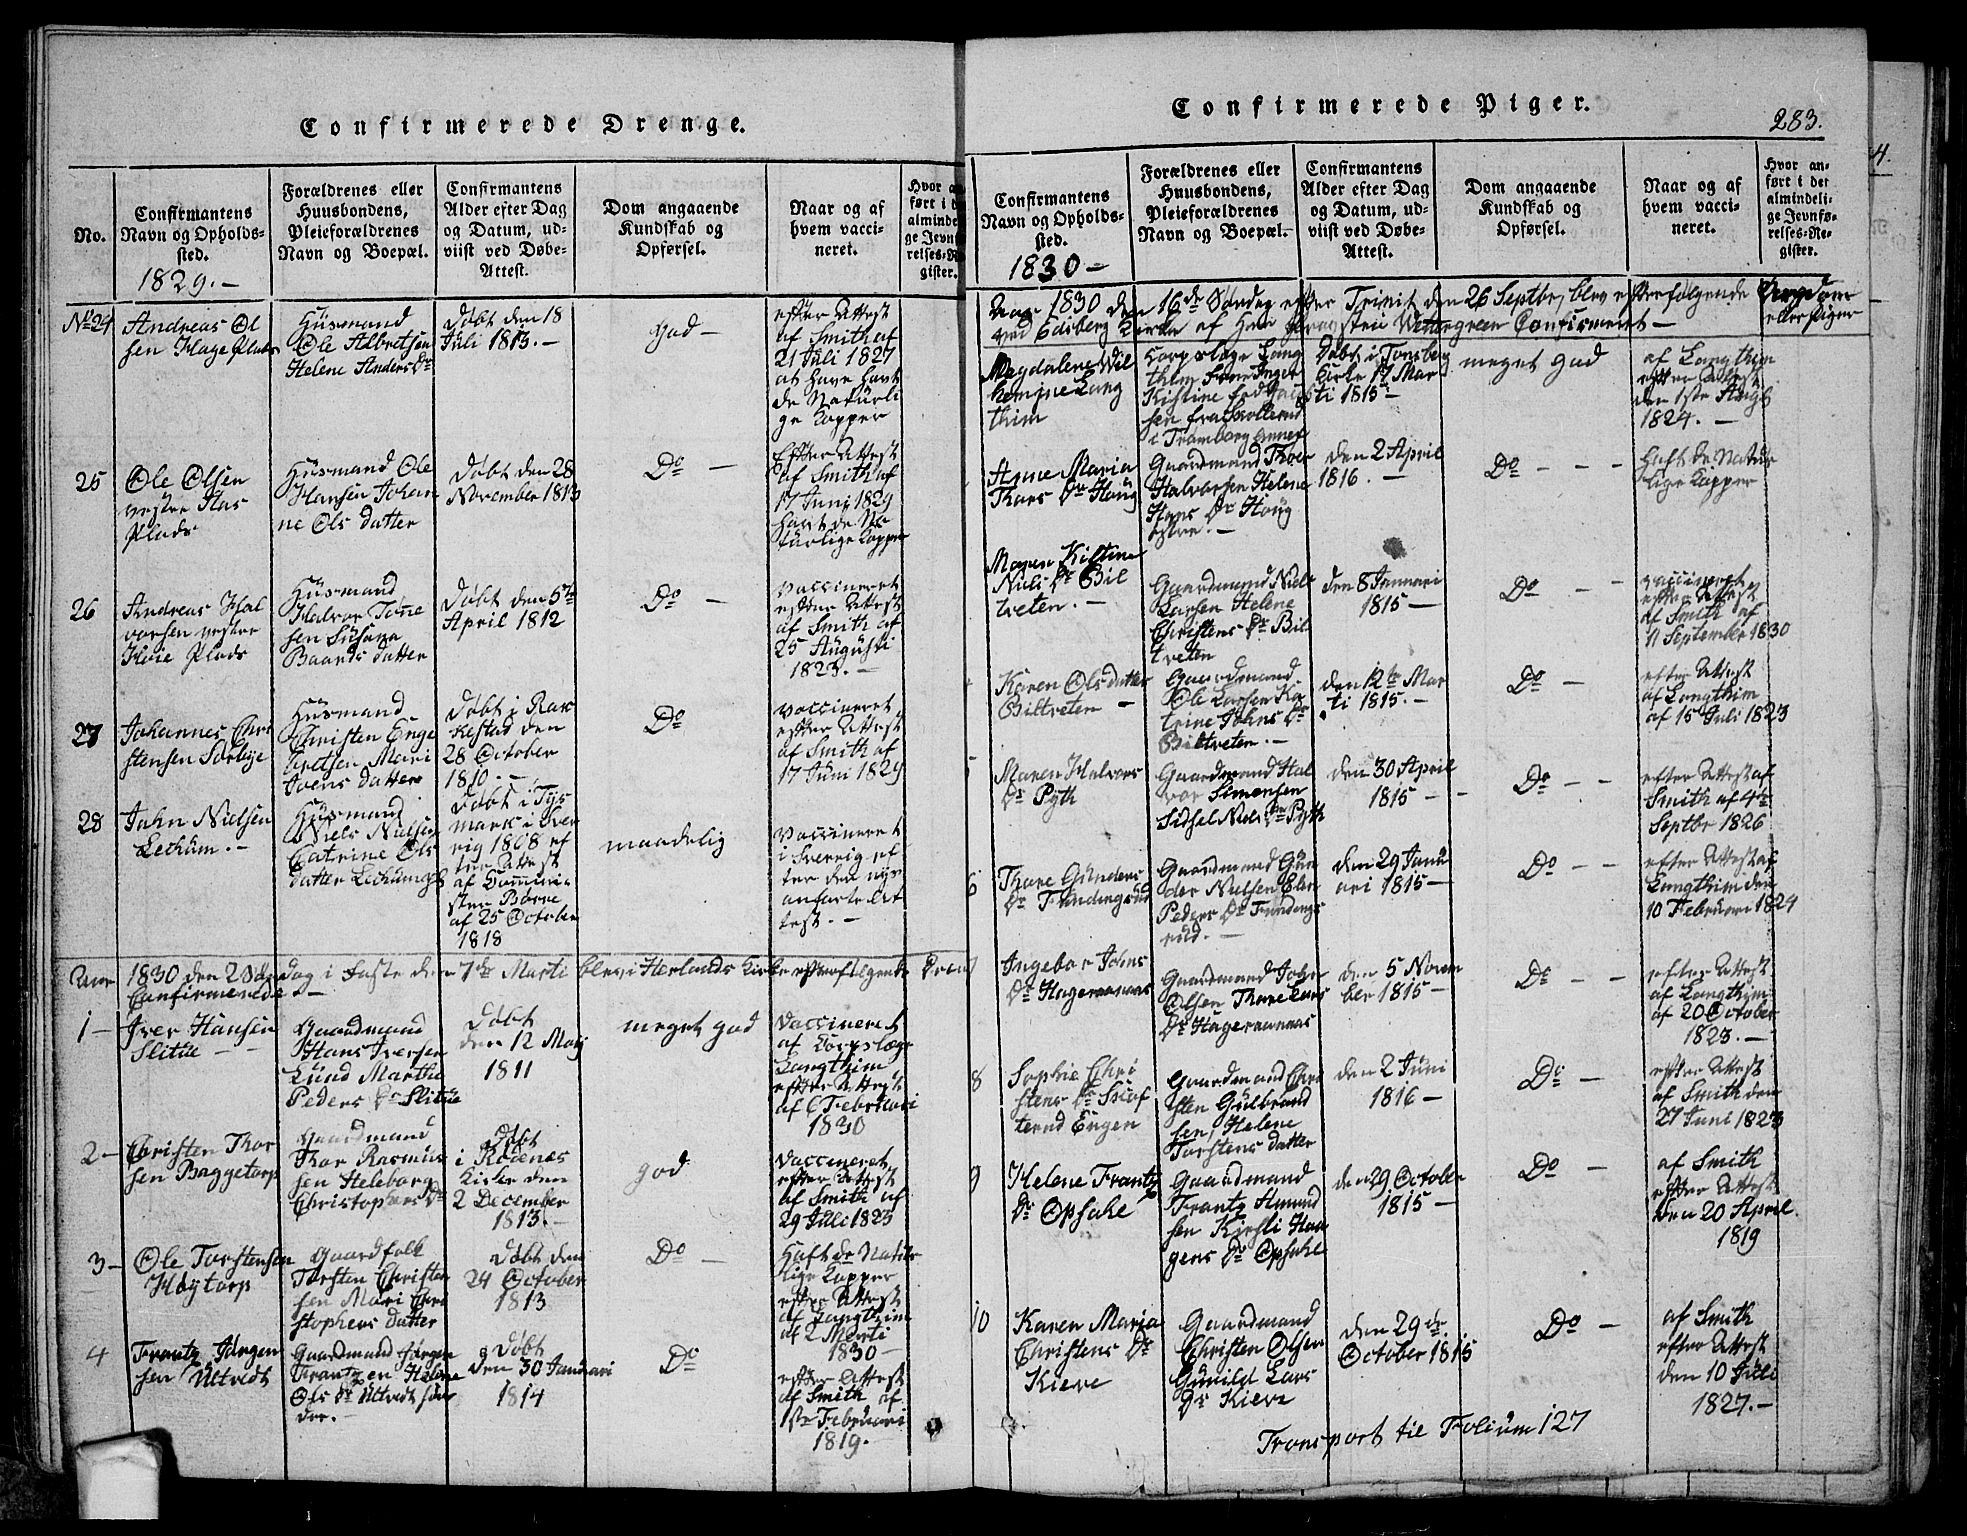 Confirmerede Drenge.
No.
Confirmantens
Navn og Opholds-
sted.
1829.—
Forældrenes eller
Huusbondens,
Pleieforældrenes
Navn og Boepæl.
Confirmantens
Alder efter Dag
og Datum, ud-
viist ved Døbe-
Attest.
Dom angaaende
Kundskab og
Opførsel.
Naar og af
hvem vacci-
neret.
Hvor an
ført i d
almind
ge Jevn
relses-R
gister.
No 24
Andreas Ol
sen Hage Plads
Huusmand
Ole Albretsen
Helene Anders Dr
Døbt den 18
Juli 1813.—
God—
efter Attest
af Smith af
21 Juli 1827
at have havt
de Naturli
ge Kopper
25
Ole Olsen
vestre Has
Plads
Huusmand Ole
Hansen Johan
ne Ols datter
Døbt den 28
November 1813
Do —
Efter Attest
af Smith af
17 Juni 1829
havt de Na
turlige Kopper
26
Andreas Hal
vorsen vestre
Høie Plads
Huusmand
Halvor Tøne
sen Susana
Baards datter
Døbt den 5te
April 1812
Do —
vaccineret
efter Attest
af Smith af
25 Augusti
1823.—
27
Johannes Chri
stensen Sørbye
Huusmand
Christen Enge
bretsen Mari
Joens datter
Døbt i Rak
kestad den
28 October
1810.—
Do
vaccineret
efter Attest
af Smith af
17 Juni 1829
28
John Nielsen
Lechum.—
Huusmand
Niels Nielsen
Catrine Ols
datter Lechum
Døbt i
mark i Sver
rig 1808 ef
ter Attest
af
af 25 October
1818
maadelig
vaccineret
i Sverrig ef
ter den nys
anførte At
test.—
Aar 1830 den 2 Søndag i Faste den 7de Marti blev i Herlands Kirke efterfølgende Dreng
Confirmerede.—
1—
Iver Hansen
Slitue —
Gaardmand
Hans Iversen
Lund Marthe
Peders Dr Slitue
Døbt
den 12 Maj
1811
meget god
vaccineret
af Corpslæge
Langthim
efter Attest
af 6 Februari
1830
2—
Christen Thor
sen Baggetorp
Gaardmand
Thor Rasmus
sen Heleborg
Christophers Dr
Døbt
i Rødenæs
Kirke den
2 December
1813.—
god
vaccineret
efter Attest
af Smith af
29 Juli 1823
3—
Ole Torstensen
Høytorp
Gaardfolk
Torsten Christen
sen Mari Chri
stophers datter
Døbt den
24 October
1813
Do —
Haft de Natur
lige Kopper
efter Attest
af Langthim
af 2 Marti
1830—
4
Frantz Jørgen
sen Ultvedt
Gaardmand Jørgen
Frantzen Helene
Ols Dr Ultvedt søn
dre.—
Døbt
den 30 Januari
1814
Do
efter Attest
af Smith af
1ste Februari
1819.
Confirmerede Piger.
283.
Confirmantens
Navn og Opholds-
sted.
1830—
Forældrenes eller
Huusbondens,
Pleieforældrenes
Navn og Boepæl.
Confirmantens
Alder efter Dag
og Datum, ud-
viist ved Døbe-
Attest.
Dom angaaende
Kundskab og
Opførsel.
Naar og af
hvem vacci-
neret.
Hvor an-
ført i det
almindeli-
ge Jevnfø-
relses-Re-
gister.
Aar 1830 Den 16de Søndag efter Trinit den 26 Septbr, blev efterfølgende Ungdom
ved Edsberg Kirke af Herr Provsten Wettergreen Confirmeret—
eller Piger
Magdalene Wil
hemine Lang
thim
Corpslæge Lang
thim Sine Inger
Kistine fød Jacob
sen fra
i Trømborg annex
Døbt i Tønsberg
Kirke 17 Mar
ti 1815—
meget god
af Langthim
efter Attest
den 1ste Aug
1824.—
Anne Maria
Thors Dr Houg
Gaardmand Thoer
Halvorsen Helene
Hans Dr Houg
østre.—
den 2 April
1816.—
Do — — —
Haft de Natur
lige Kopper
Maren Kistine
Niels Dr Bil
treten.—
Gaardmand Niels
Larsen Helene
Christens Dr Bil
treten
den 8 Januari
1815—
Do — —
vaccineret
efter Attest
af Smith af
11 September 1830
Karen Olsdatter
Biltreten —
Gaardmand
Ole Larsen Ka
trine Johns Dr
Biltveten.—
den 12te Mar
ti 1815.—
Do —
efter Attest
af Langthim
af 15 Juli 1823
5
Maren Halvors
Dr Pyth
Gaardmand Hal
vor Simensen
Sidsel Niels Dr Pyth
den 30 April
1815— —
Do — —
efter Attest af
Smith af 4de
Septbr 1826
6
Thore Gunders
Dr Fundingrud
Gaardmand Gun
der Nielsen Elen
Peders Dr Fundings
rud.—
den 29 Janu
ari 1815—
Do — —
efter Attest af
Langthim den
10 Februari 1824
7
Ingebor Johns
Dr Hageramnæs
Gaardmand John
Olsen Thore Lars
Dr Hageramnæs
den 5 Novem
ber 1815—
Do — —
efter Attest
af Langthim
af 20 October
1823.—
8
Sophie Chri
stens Dr
ternd Engen
Gaardmand Chri
sten Gulbrand
sen, Helene
Torstens datter
den 2 Juni
1816—
Do —
efter Attest
af Smith den
27 Juni 1823
9
Helene Frantz
Dr Opsahe
Gaardmand
Frantz Amund
sen Kirsti Haa
gens Dr Opsahe
den 29 October
1815—
Do —
af Smith
efter Attest
den 20 April
1819
10
Karen Maria
Christens Dr
Kieve
Gaardmand
Christen Olsen
Gunild Lars
Dr Kieve
den 29de
October 1815
Do —
af Smith
efter Attest
den 10 Juli
1827.—
Transport til Folium 127
4.